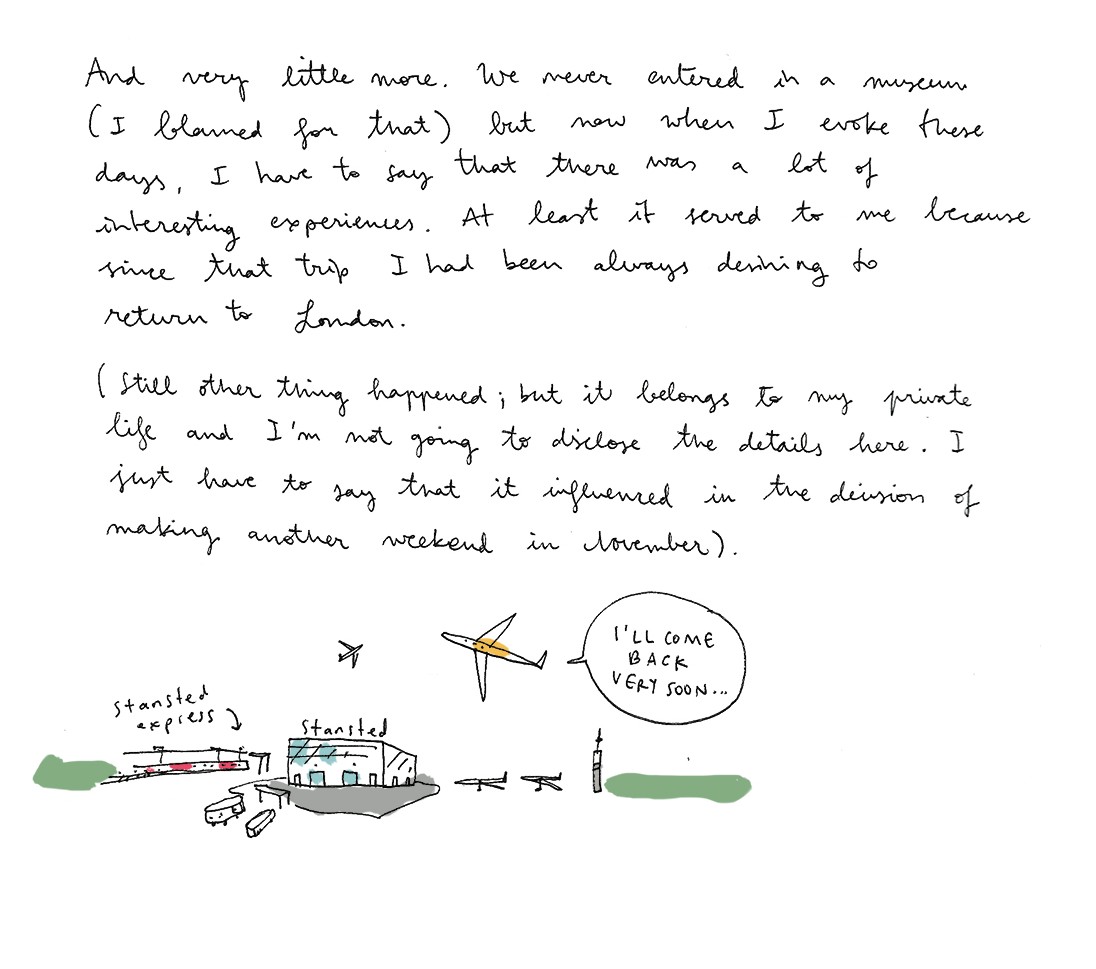 And very little more. We never entered in a museum
(I blamed for that) but now when I evoke these
days, I have to say that there was a lot of
interesting experiences. At least it served to me because
since that trip I had been always desiring to
return to London.
(Still other thing happened; but it belongs to my private
life and I'm not going to disclose the details here. I
just have to say that it influenced in the decision of
making another weekend in November).
I'LL COME
BACK
VERY SOON...
Stansted
express
Stansted